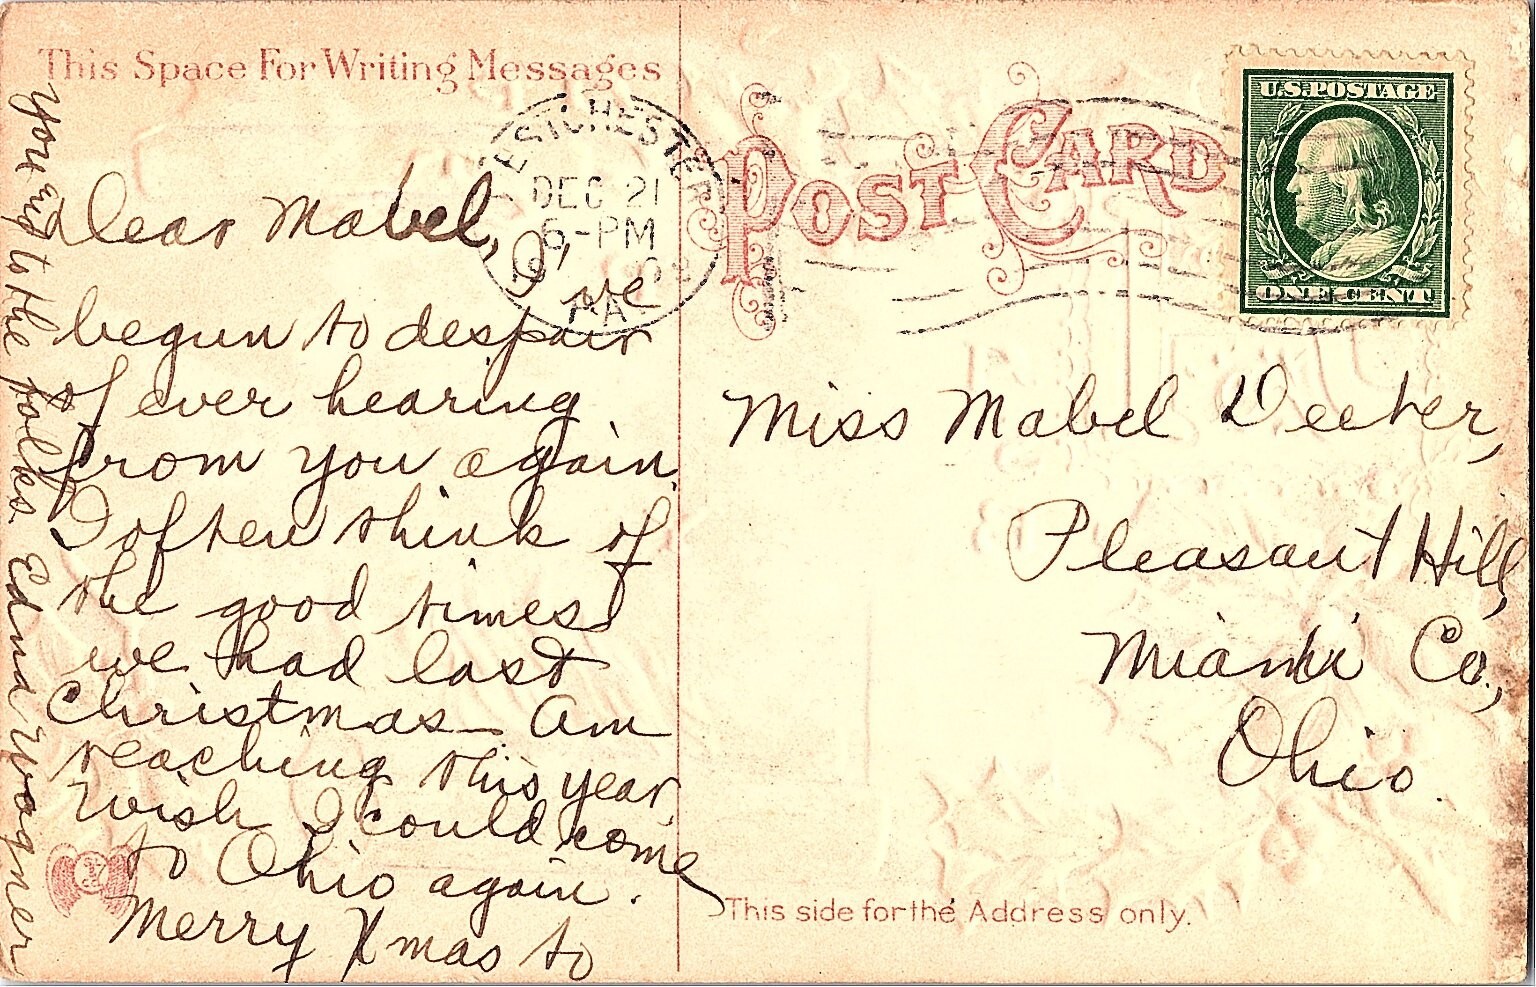 This Space For Writing Messages
WESTCHESTER
DEC 21
6-PM
PA
POST CARD
U.S. POSTAGE
ONE CENT
Dear Mabel, I've
begun to despair
of ever hearing
from you again.
I often think of
the good times
we had last
Christmas. Am
teaching this year
wish I could come
to Ohio again.
Merry Xmas to
you and to the folks. Edna Wagner
Miss Mabel Deeter,
Pleasant Hill,
Miami Co.,
Ohio.
This side for the Address only.